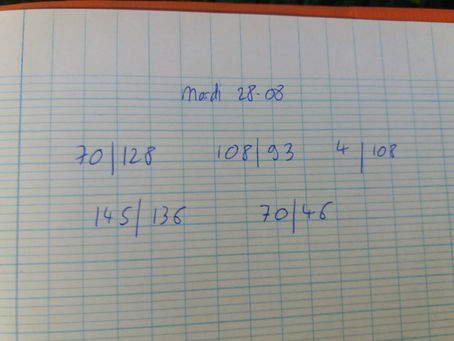 Mardi 28.08
70|128 108|93 4|108
145|136 70|46